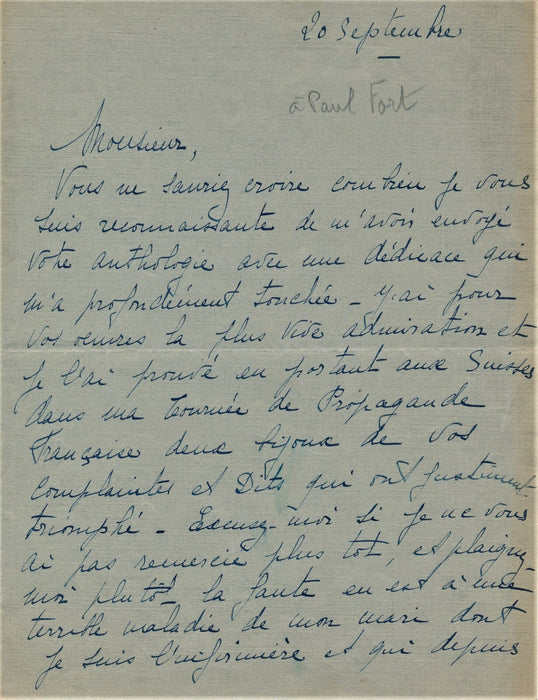 20 Septembre
à Paul Fort
Monsieur,
Vous ne sauriez croire combien je vous
suis reconnaissante de m'avoir envoyé
votre anthologie avec une dédicace qui
m'a profondément touchée – J'ai pour
vos œuvres la plus vive admiration et
je l'ai prouvé en portant aux Suisses
dans ma Tournée de Propagande
Française deux bijoux de vos
Complaintes et Dits qui ont justement
triomphé – Excusez-moi si je ne vous
ai pas remercié plus tôt, et plaignez-
moi plutôt – la faute en est à une
terrible maladie de mon mari dont
je suis l'infirmière et qui depuis